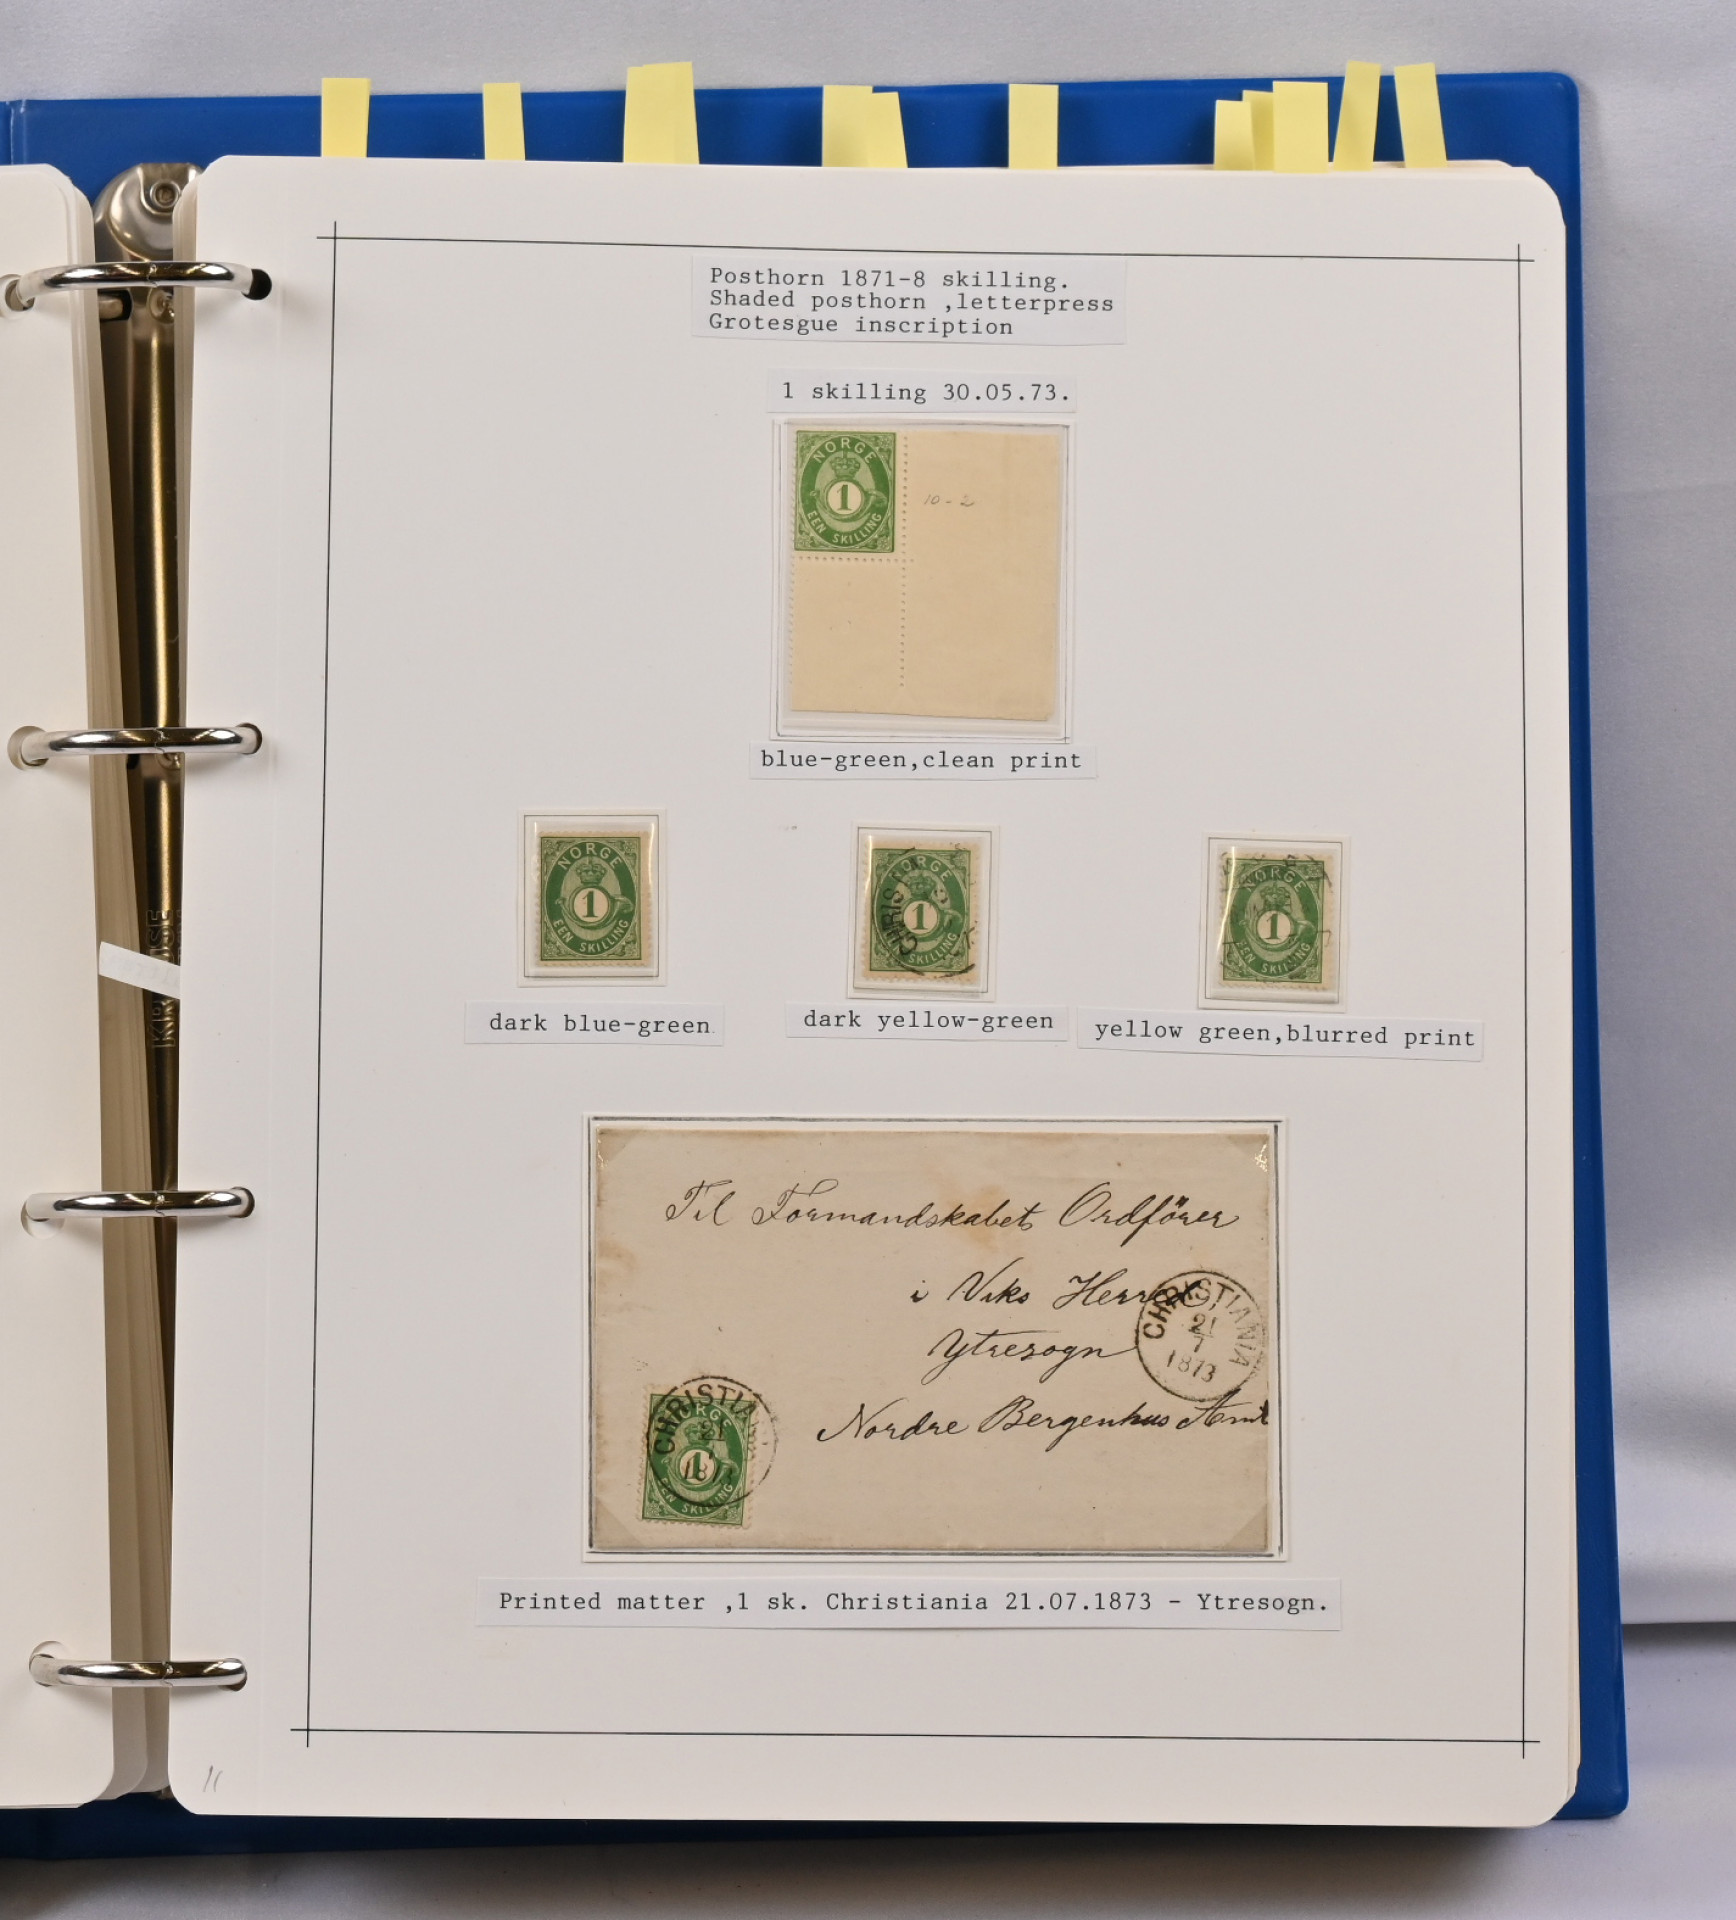 Posthorn 1871-8 skilling.
Shaded posthorn ,letterpress
Grotesgue inscription
1 skilling 30.05.73.
NORGE
1
EEN SKILLING
10-2
blue-green,clean print
NORGE
1
EEN SKILLING
NORGE
1
SKILLING
CHRIS
NORGE
1
EEN SKILLING
dark blue-green
dark yellow-green
yellow green,blurred print
Til Formandskabets Ordförer
i Viks Herred,
Ytresogn
Nordre Bergenhus Amt
CHRISTIANIA
21
7
1873
CHRISTIA
21
1873
1
EEN SKILLING
Printed matter ,1 sk. Christiania 21.07.1873 - Ytresogn.